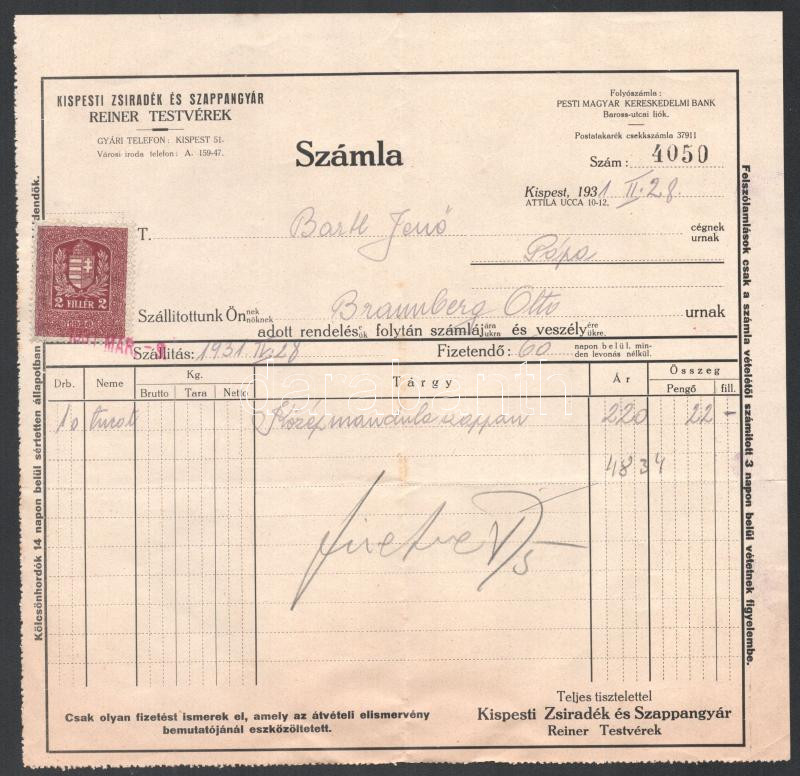 KISPESTI ZSIRADÉK ÉS SZAPPANGYÁR
REINER TESTVÉREK
GYÁRI TELEFON: KISPEST 51.
Városi iroda telefon: A. 159-47.
Számla
Folyószámla:
PESTI MAGYAR KERESKEDELMI BANK
Baross-utcai fiók.
Postatakarék csekkszámla 37911
Szám: 4050
Kispest, 1931 II. 28.
ATTILA UCCA 10-12.
T. Bartl Jenő cégnek
urnak
Pápa
Szállitottunk Önnek
nöknek
Braunberg Otto urnak
adott rendelésé folytán számlájára és veszélyére
jukra ükre.
2 FILLÉR 2
1931 MÁR.
Szállitás: 1931 II 28 Fizetendő: 60 napon belül, minden levonás nélkül.
Drb. Neme Kg. Tárgy Ár Összeg
Brutto Tara Netto Pengő fill.
10 Középmandula szappan 220 22 -
4834
fizetve
Csak olyan fizetést ismerek el, amely az átvételi elismervény
bemutatójánál eszközöltetett.
Teljes tisztelettel
Kispesti Zsiradék és Szappangyár
Reiner Testvérek
Kölcsönhordók 14 napon belül sértetlen állapotban
dendők.
Felszólamlások csak a számla vételétől számított 3 napon belül vétetnek figyelembe.
darabanth